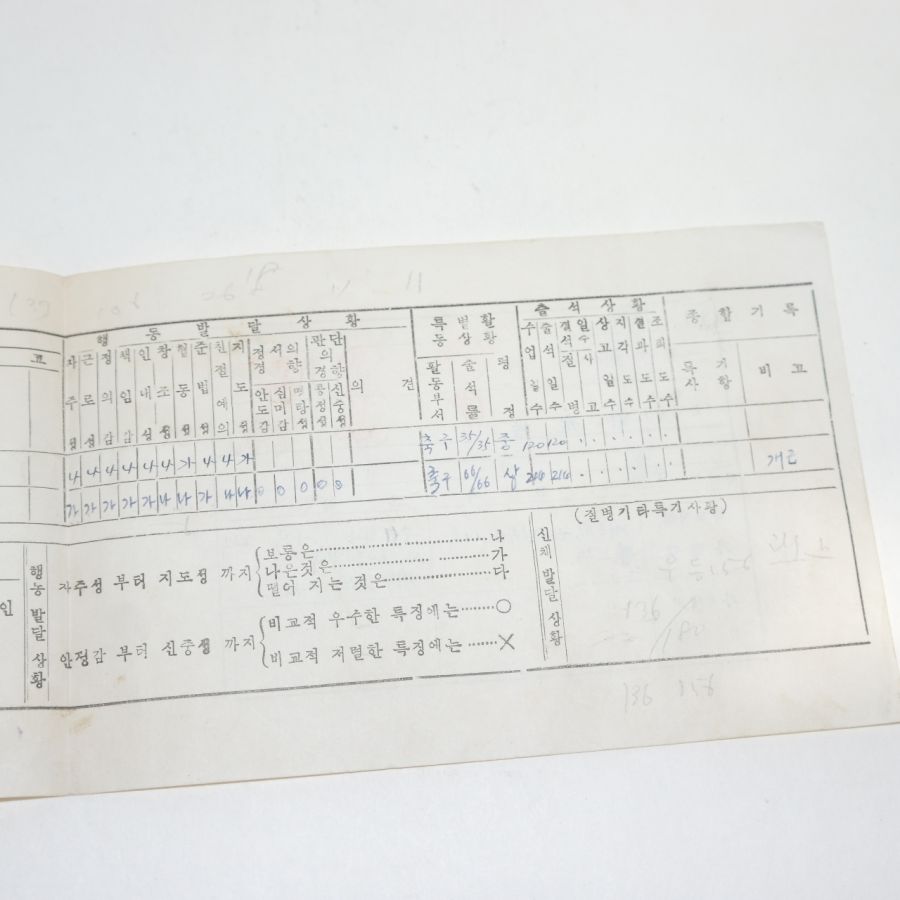 고
행동발달상황
자주성 근로성 정의감 책임감 인내심 창조성 협동성 준법성 친절예의 지도성
정서의경향 안정감 심미감 명랑성
판단의경향 공정성 신중성
의견
특별활동상황
활동부서 출석률 평정
출석상황
수업일수 출석일수 결석일수 질병 사고 사고일수 지각도수 결과도수 조퇴도수
종합기록
특기사항 비고
나 나 나 나 나 나 가 나 나 가
축구 35/35 중 120 120 · · · · · ·
가 가 가 가 가 나 나 가 나 나 ○ ○ ○ ○ ◎
축구 66/66 상 214 214 · · · · · · 개근
인
행동발달상황
자주성 부터 지도성 까지
보통은 나
나은것은 가
떨어 지는 것은 다
안정감 부터 신중성 까지
비교적 우수한 특징에는 ○
비교적 저렬한 특징에는 X
신체발달상황
(질병기타특기사항)
136
180
136 156